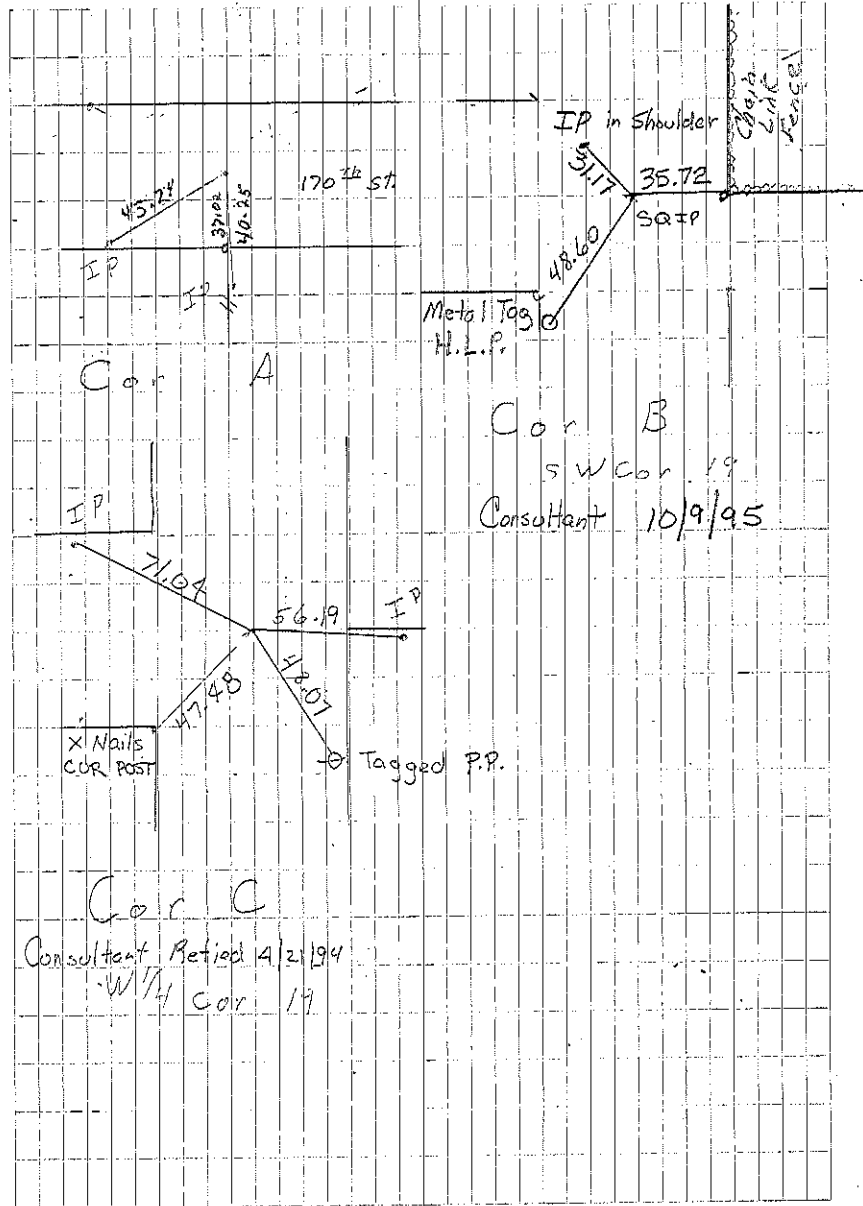 45.24
37.02
40.25
170th St.
IP
IP
Cor A
IP in Shoulder
Chain
Link
Fence
31.17
35.72
SQ IP
48.60
Metal Tag
H.L.P.
Cor B
SW Cor 19
Consultant 10/9/95
IP
71.04
56.19
IP
47.48
48.07
X Nails
COR POST
Tagged P.P.
Cor C
Consultant Retied 4/21/94
W 1/4 Cor 19